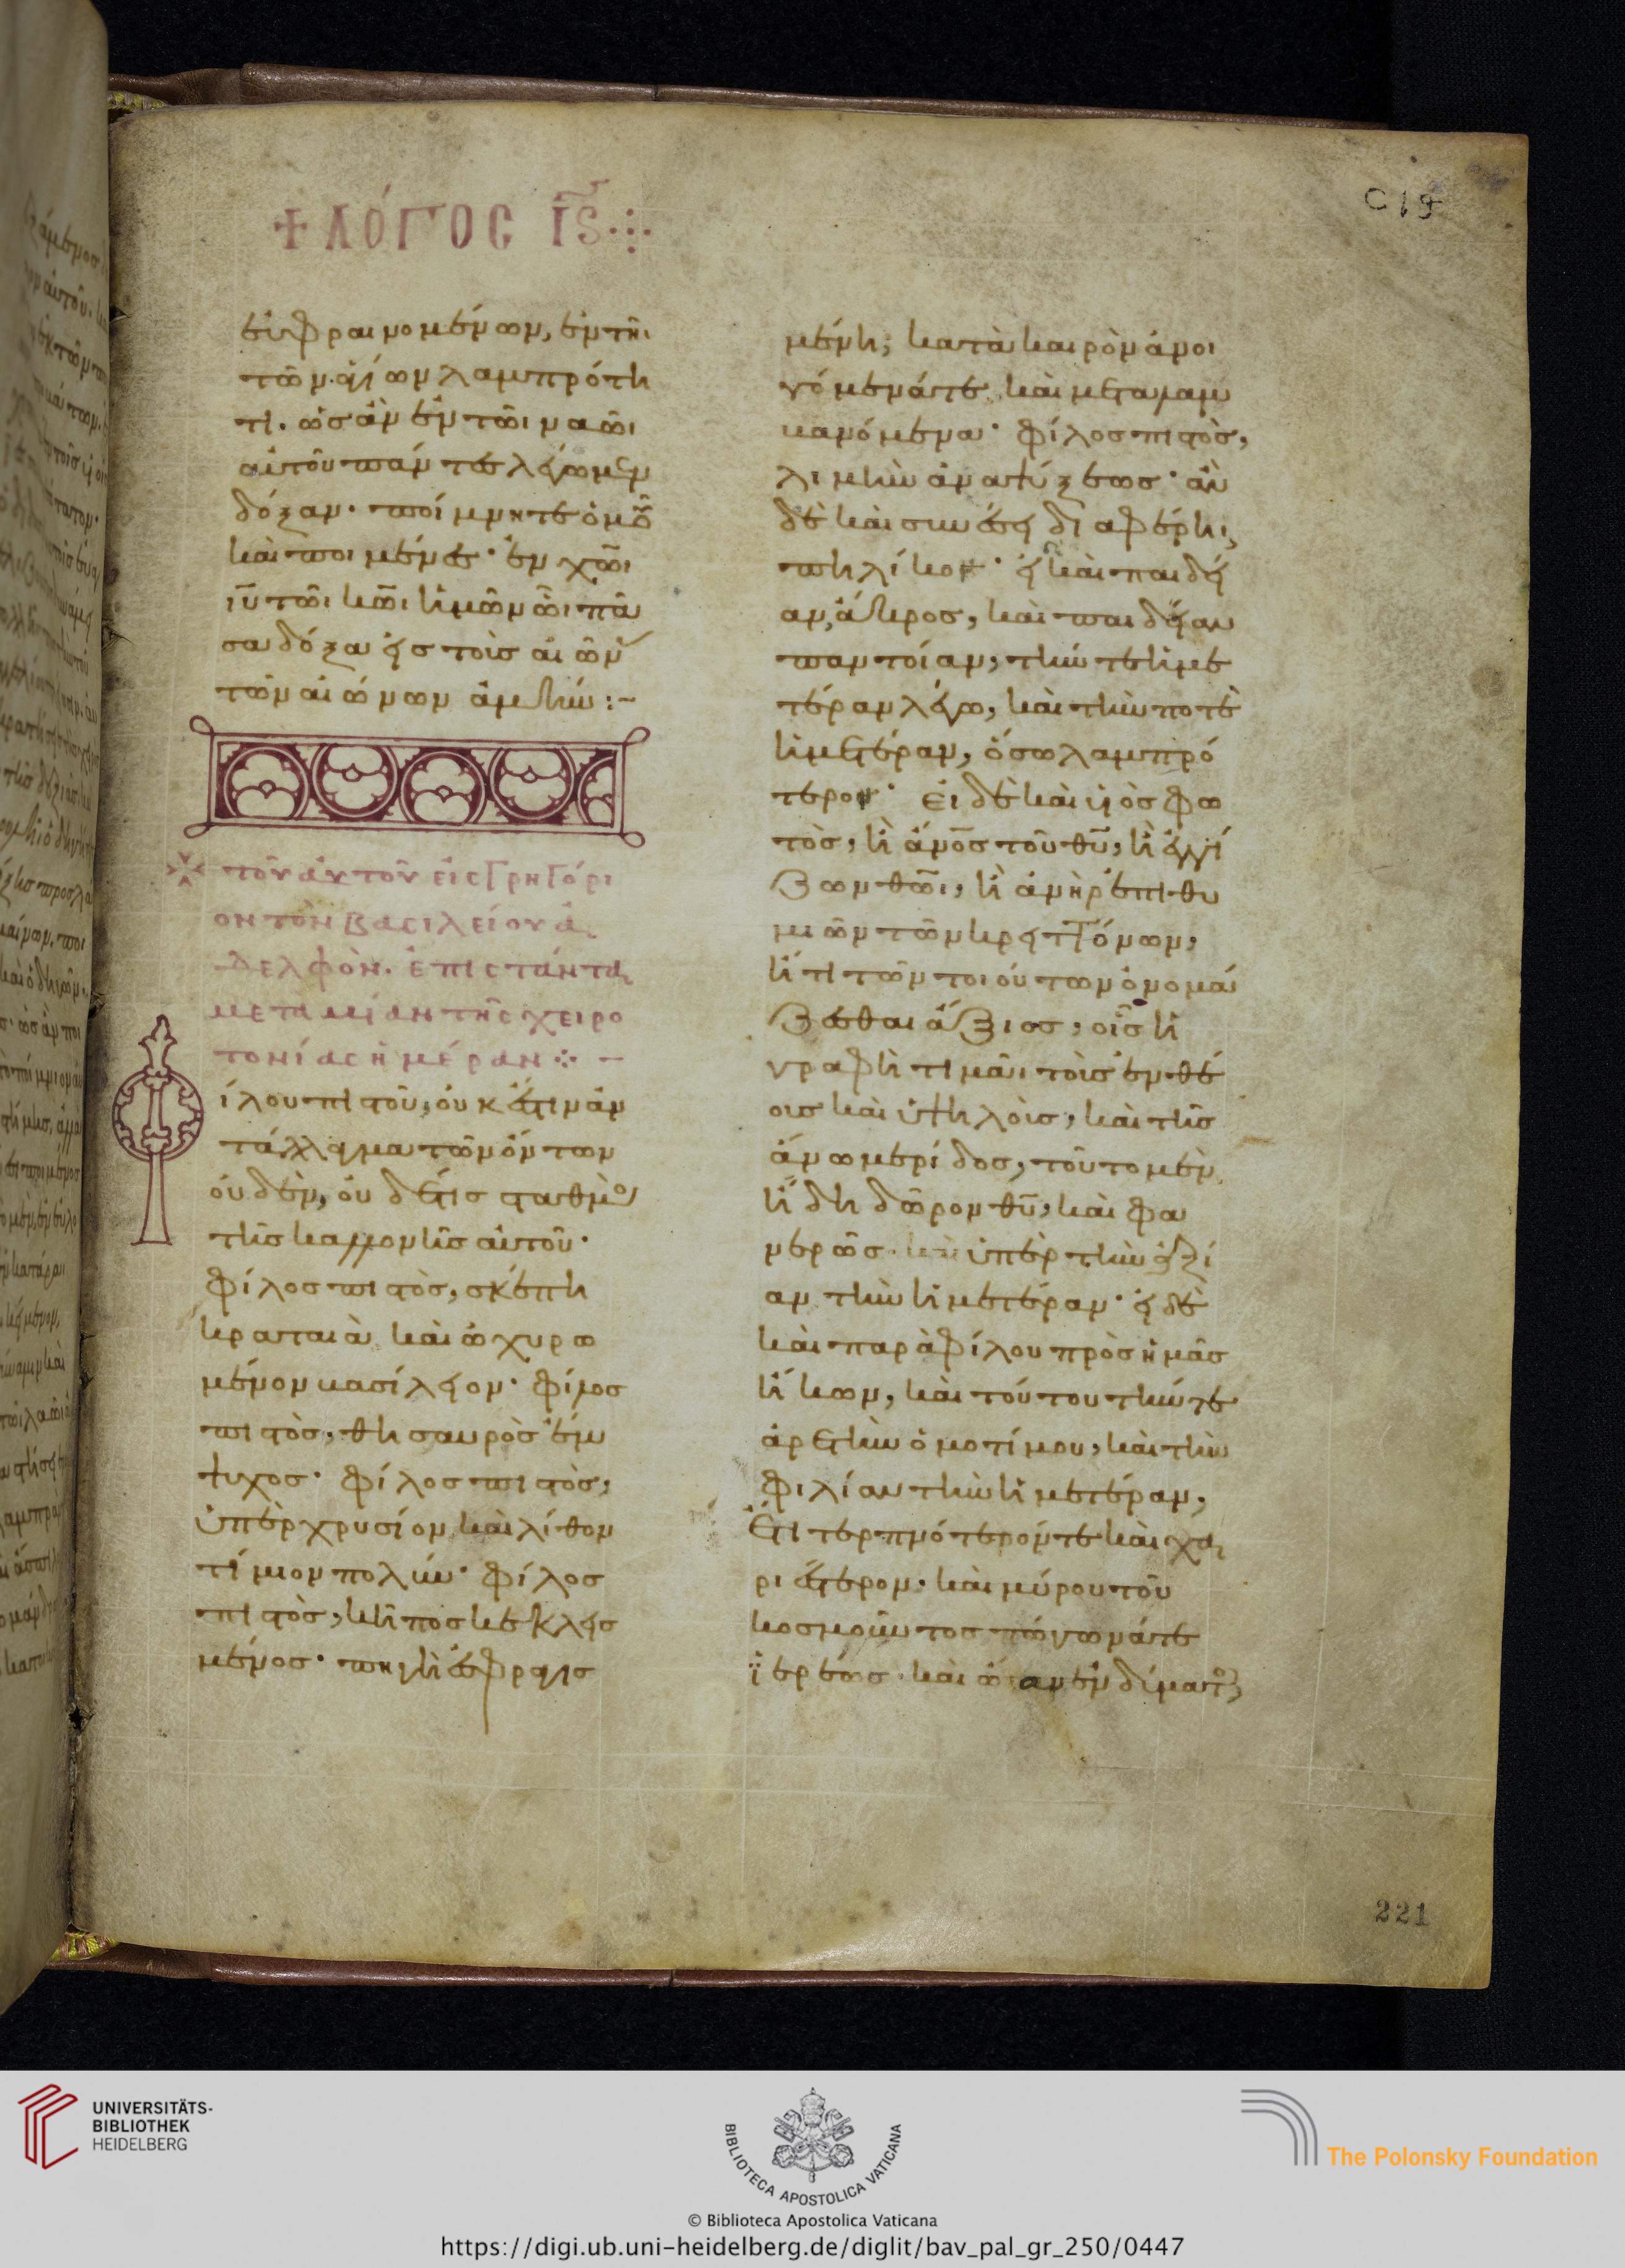 + ΛΌΓΟC ΙϚ
εὐφραινομένων, ἐν τῆι
τῶν ἁγίων λαμπρότη
τι. ὡς ἂν ἐν τῶι ναῶι
αὐτοῦ πάντες λέγωμεν
δόξαν. ποίμνητε ὁμοῦ
καὶ ποιμένες· ἐν χῶι
ιῦ τῶι κῶι ἡμῶν ὧι πᾶ
σα δόξα εἰς τοὺς αἰῶν
τῶν αἰώνων ἀμήν:~
τοῦ αὐτοῦ εἰς Γρηγόρι
ον τὸν βασιλείου ἀ
δελφὸν. ἐπιστάντα
μετα μίαν τῆς χειρο
τονίας ἡμέραν ⁘ ~
Φ
ίλου πιστοῦ, οὐκ ἔστιν ἀν
τάλλαγμα τῶν ὄντων
οὐδὲν, οὐδέ τις σταθμὸς
τῆς καλλονῆς αὐτοῦ·
φίλος πιστὸς, σκέπη
κραταιὰ καὶ ὠχυρω
μένον βασίλειον· φίλος
πιστὸς, θησαυρὸς ἔμ
ψυχος· φίλος πιστὸς,
ὑπὲρ χρυσίον καὶ λίθον
τίμιον πολύν· φίλος
πιστὸς, κῆπος κεκλεισ
μένος· πηγὴ ἐσφραγισ
μένη; κατὰ καιρὸν ἀνοι
γόμενά τε καὶ μεταλαμ
βανόμενα· φίλος πιστὸς,
λιμὴν ἀναψύξεως· ἂν
δὲ καὶ συνέσει διαφέρηι,
πηλίκον· εἰ καὶ παιδεί
αν, ἄκρος, καὶ παιδείαν
παντοίαν, τήν τε ἡμε
τέραν λέγω, καὶ τὴν ποτὲ
ἡμετέραν, ὅσω λαμπρό
τερον· εἰ δὲ καὶ υἱὸς φω
τὸς, ἢ ἄνος τοῦ θῦ, ἢ ἐγγί
ζων θῶι, ἢ ἀνὴρ ἐπιθυ
μιῶν τῶν κρειττόνων,
ἤ τι τῶν τοιούτων ὀνομά
ζεσθαι ἄξιος, οἷς ἡ
γραφὴ τιμᾶι τοὺς ἐνθέ
ους καὶ ὑψηλοὺς, καὶ τῆς
ἄνω μερίδος, τοῦτο μὲν
ἤδη δῶρον θῦ, καὶ φα
νερῶς καὶ ὑπὲρ τὴν ἀξί
αν τὴν ἡμετέραν· εἰ δὲ
καὶ παρὰ φίλου πρὸς ἡμᾶς
ἥκων, καὶ τούτου τήν τε
ἀρετὴν ὁμοτίμου, καὶ τὴν
φιλίαν τὴν ἡμετέραν,
ἔτι τερπνότερόν τε καὶ χα
ριέστερον. καὶ μύρου τοῦ
κοσμοῦντος πώγωνά τε
ἱερέως. καὶ ὤαν ἐνδύματος,
221
UNIVERSITÄTS-
BIBLIOTHEK
HEIDELBERG
BIBLIOTECA APOSTOLICA VATICANA
The Polonsky Foundation
© Biblioteca Apostolica Vaticana
https://digi.ub.uni-heidelberg.de/diglit/bav_pal_gr_250/0447